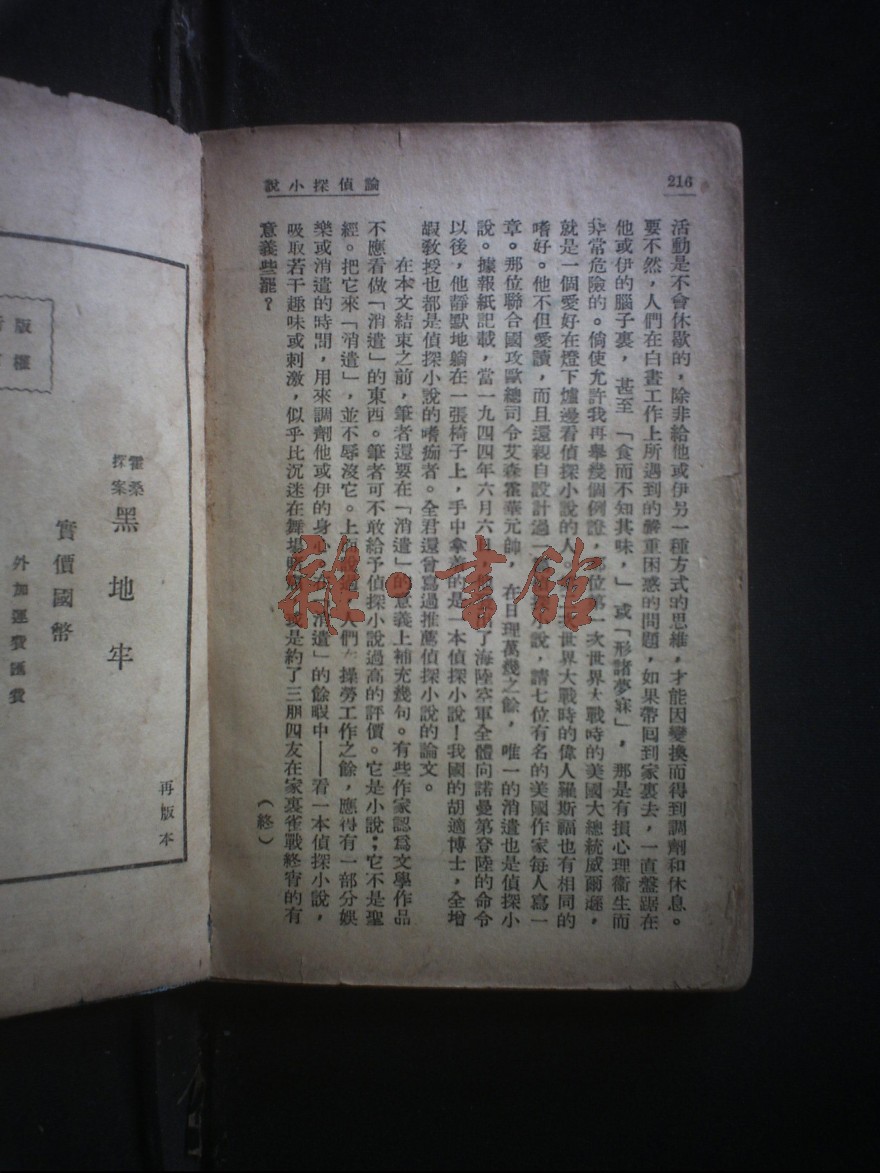 216
論偵探小說
活動是不會休歇的，除非給他或伊另一種方式的思維，才能因變換而得到調劑和休息。
要不然，人們在白晝工作上所遇到的嚴重困惑的問題，如果帶回到家裏去，一直盤踞在
他或伊的腦子裏，甚至「食而不知其味，」或「形諸夢寐」，那是有損心理衞生而
非常危險的。倘使允許我再舉幾個例證，那位第一次世界大戰時的美國大總統威爾遜，
就是一個愛好在燈下爐邊看偵探小說的人。世界大戰時的偉人羅斯福也有相同的
嗜好。他不但愛讀，而且還親自設計過一說，請七位有名的美國作家每人寫一
章。那位聯合國攻歐總司令艾森霍華元帥，在日理萬幾之餘，唯一的消遣也是偵探小
說。據報紙記載，當一九四四年六月六日，他了海陸空軍全體向諾曼第登陸的命令
以後，他靜默地躺在一張椅子上，手中拿着的是一本偵探小說！我國的胡適博士，全增
嘏敎授也都是偵探小說的嗜痴者。全君還曾寫過推薦偵探小說的論文。
在本文結束之前，筆者還要在「消遣」的意義上補充幾句。有些作家認爲文學作品
不應看做「消遣」的東西。筆者可不敢給予偵探小說過高的評價。它是小說；它不是聖
經。把它來「消遣」，並不辱沒它。上人們在操勞工作之餘，應得有一部分娛
樂或消遣的時間，用來調劑他或伊的身心。在「消遣」的餘暇中——看一本偵探小說，
吸取若干趣味或刺激，似乎比沉迷在舞場是約了三朋四友在家裏雀戰終宵的有
意義些罷？
（終）
雜·書館
版權
霍桑探案
黑地牢
實價國幣
外加運費匯費
再版本